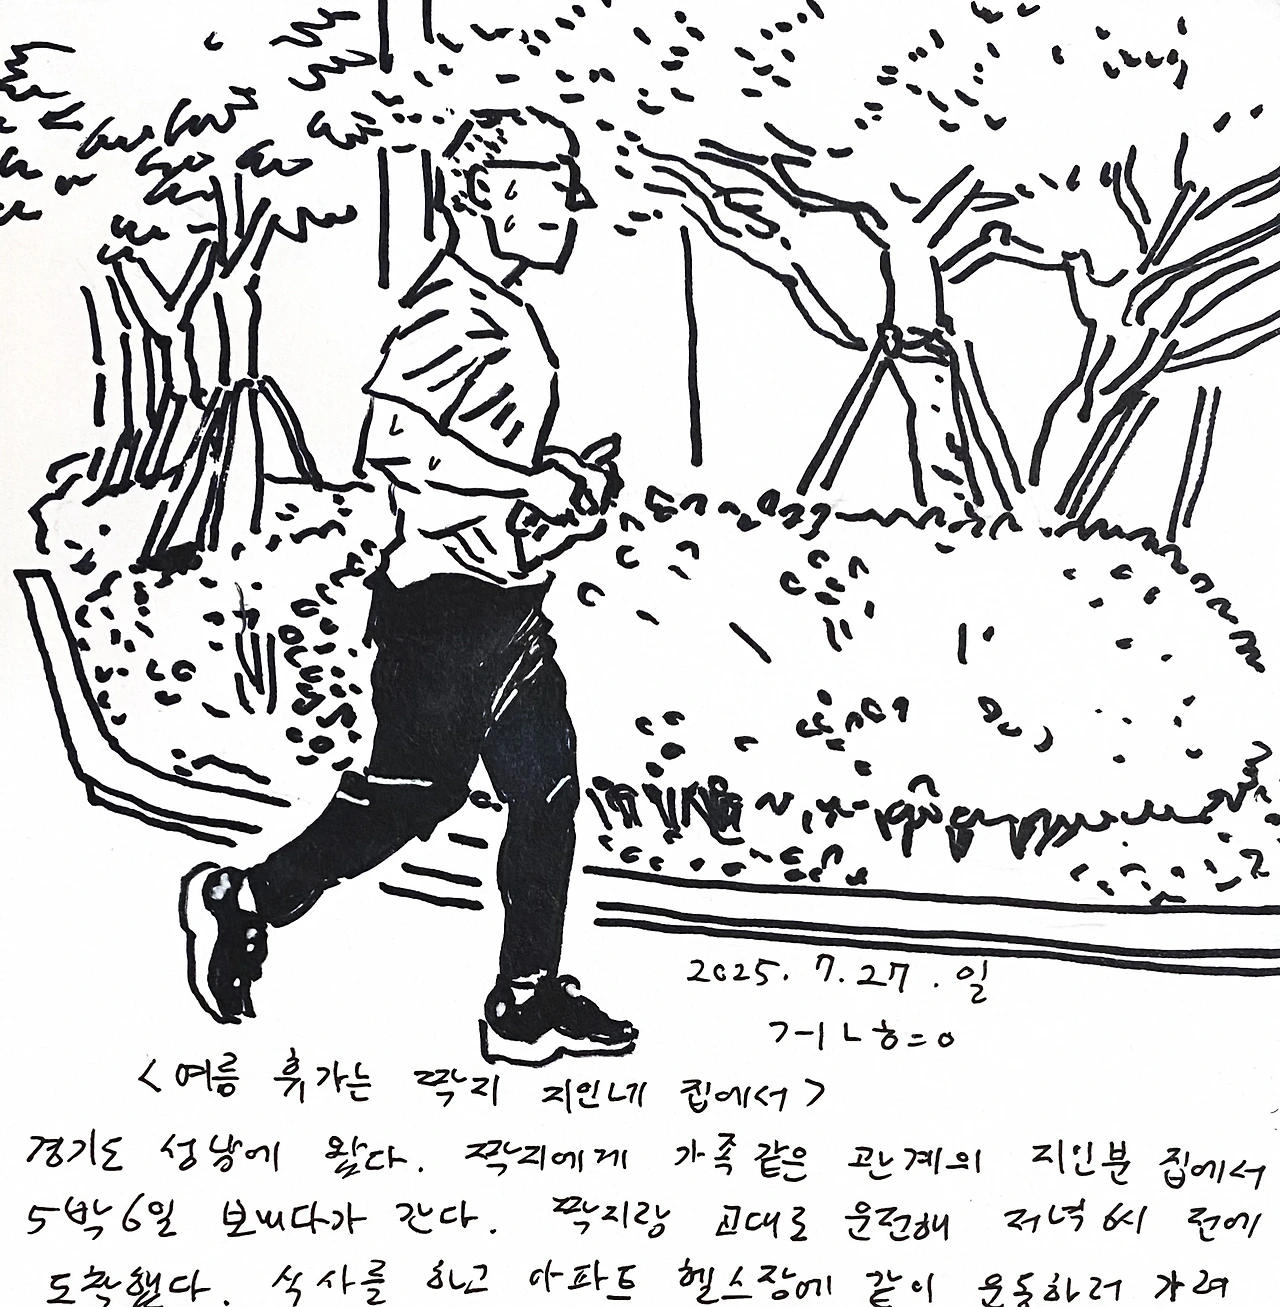 2025. 7. 27. 일
ㄱㅓㄴㅎㅡㅇ
<여름 휴가는 짝지 지인네 집에서>
경기도 성남에 왔다. 짝지에게 가족같은 관계의 지인분 집에서
5박6일 보내다가 간다. 짝지랑 교대로 운전해 저녁 6시 전에
도착했다. 식사를 하고 아파트 헬스장에 같이 운동하러 가려